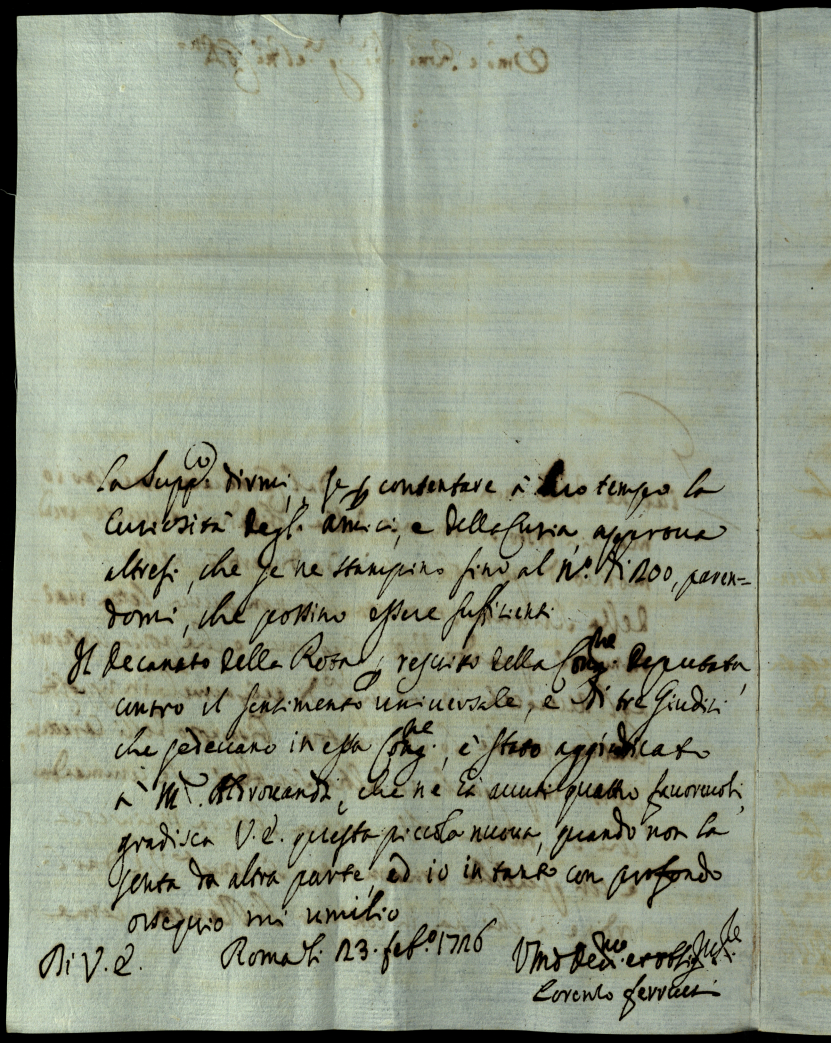 La supp.co dirmi, se p contentare à suo tempo la
Curiosità degl. amici, e della Curia, approva
altresi, che se ne stampino fino al n.º di 200, paren-
domi, che possino essere sufficienti.
Il Decanato della Rota p rescritto della Cong.ne Deputata,
contro il sentimento universale, e di tre Giudici
che sedevano in essa Cong.ne, è stato aggiudicato
à M.r, che ne hà avuti quattro favorevoli,
gradisca V.E. questa piccola nuova, quando non la
senta da altra parte, ed io intanto con profondo
ossequio mi umilio
Di V.E. Roma li 23. feb.º 1726 Umo Devmo et obbl
Lorenzo